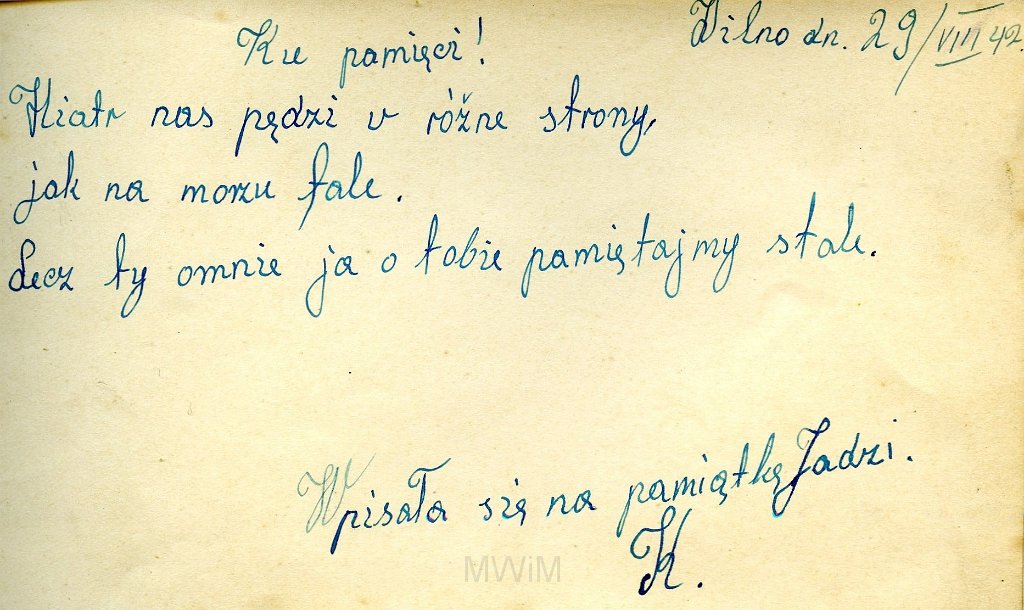 Wilno dn. 29/VIII 42.
Ku pamięci!
Wiatr nas pędzi v różne strony,
jak na morzu fale.
Lecz ty omnie ja o tobie pamiętajmy stale.
Wpisała się na pamiątkę Jadzi.
K.
MWiM